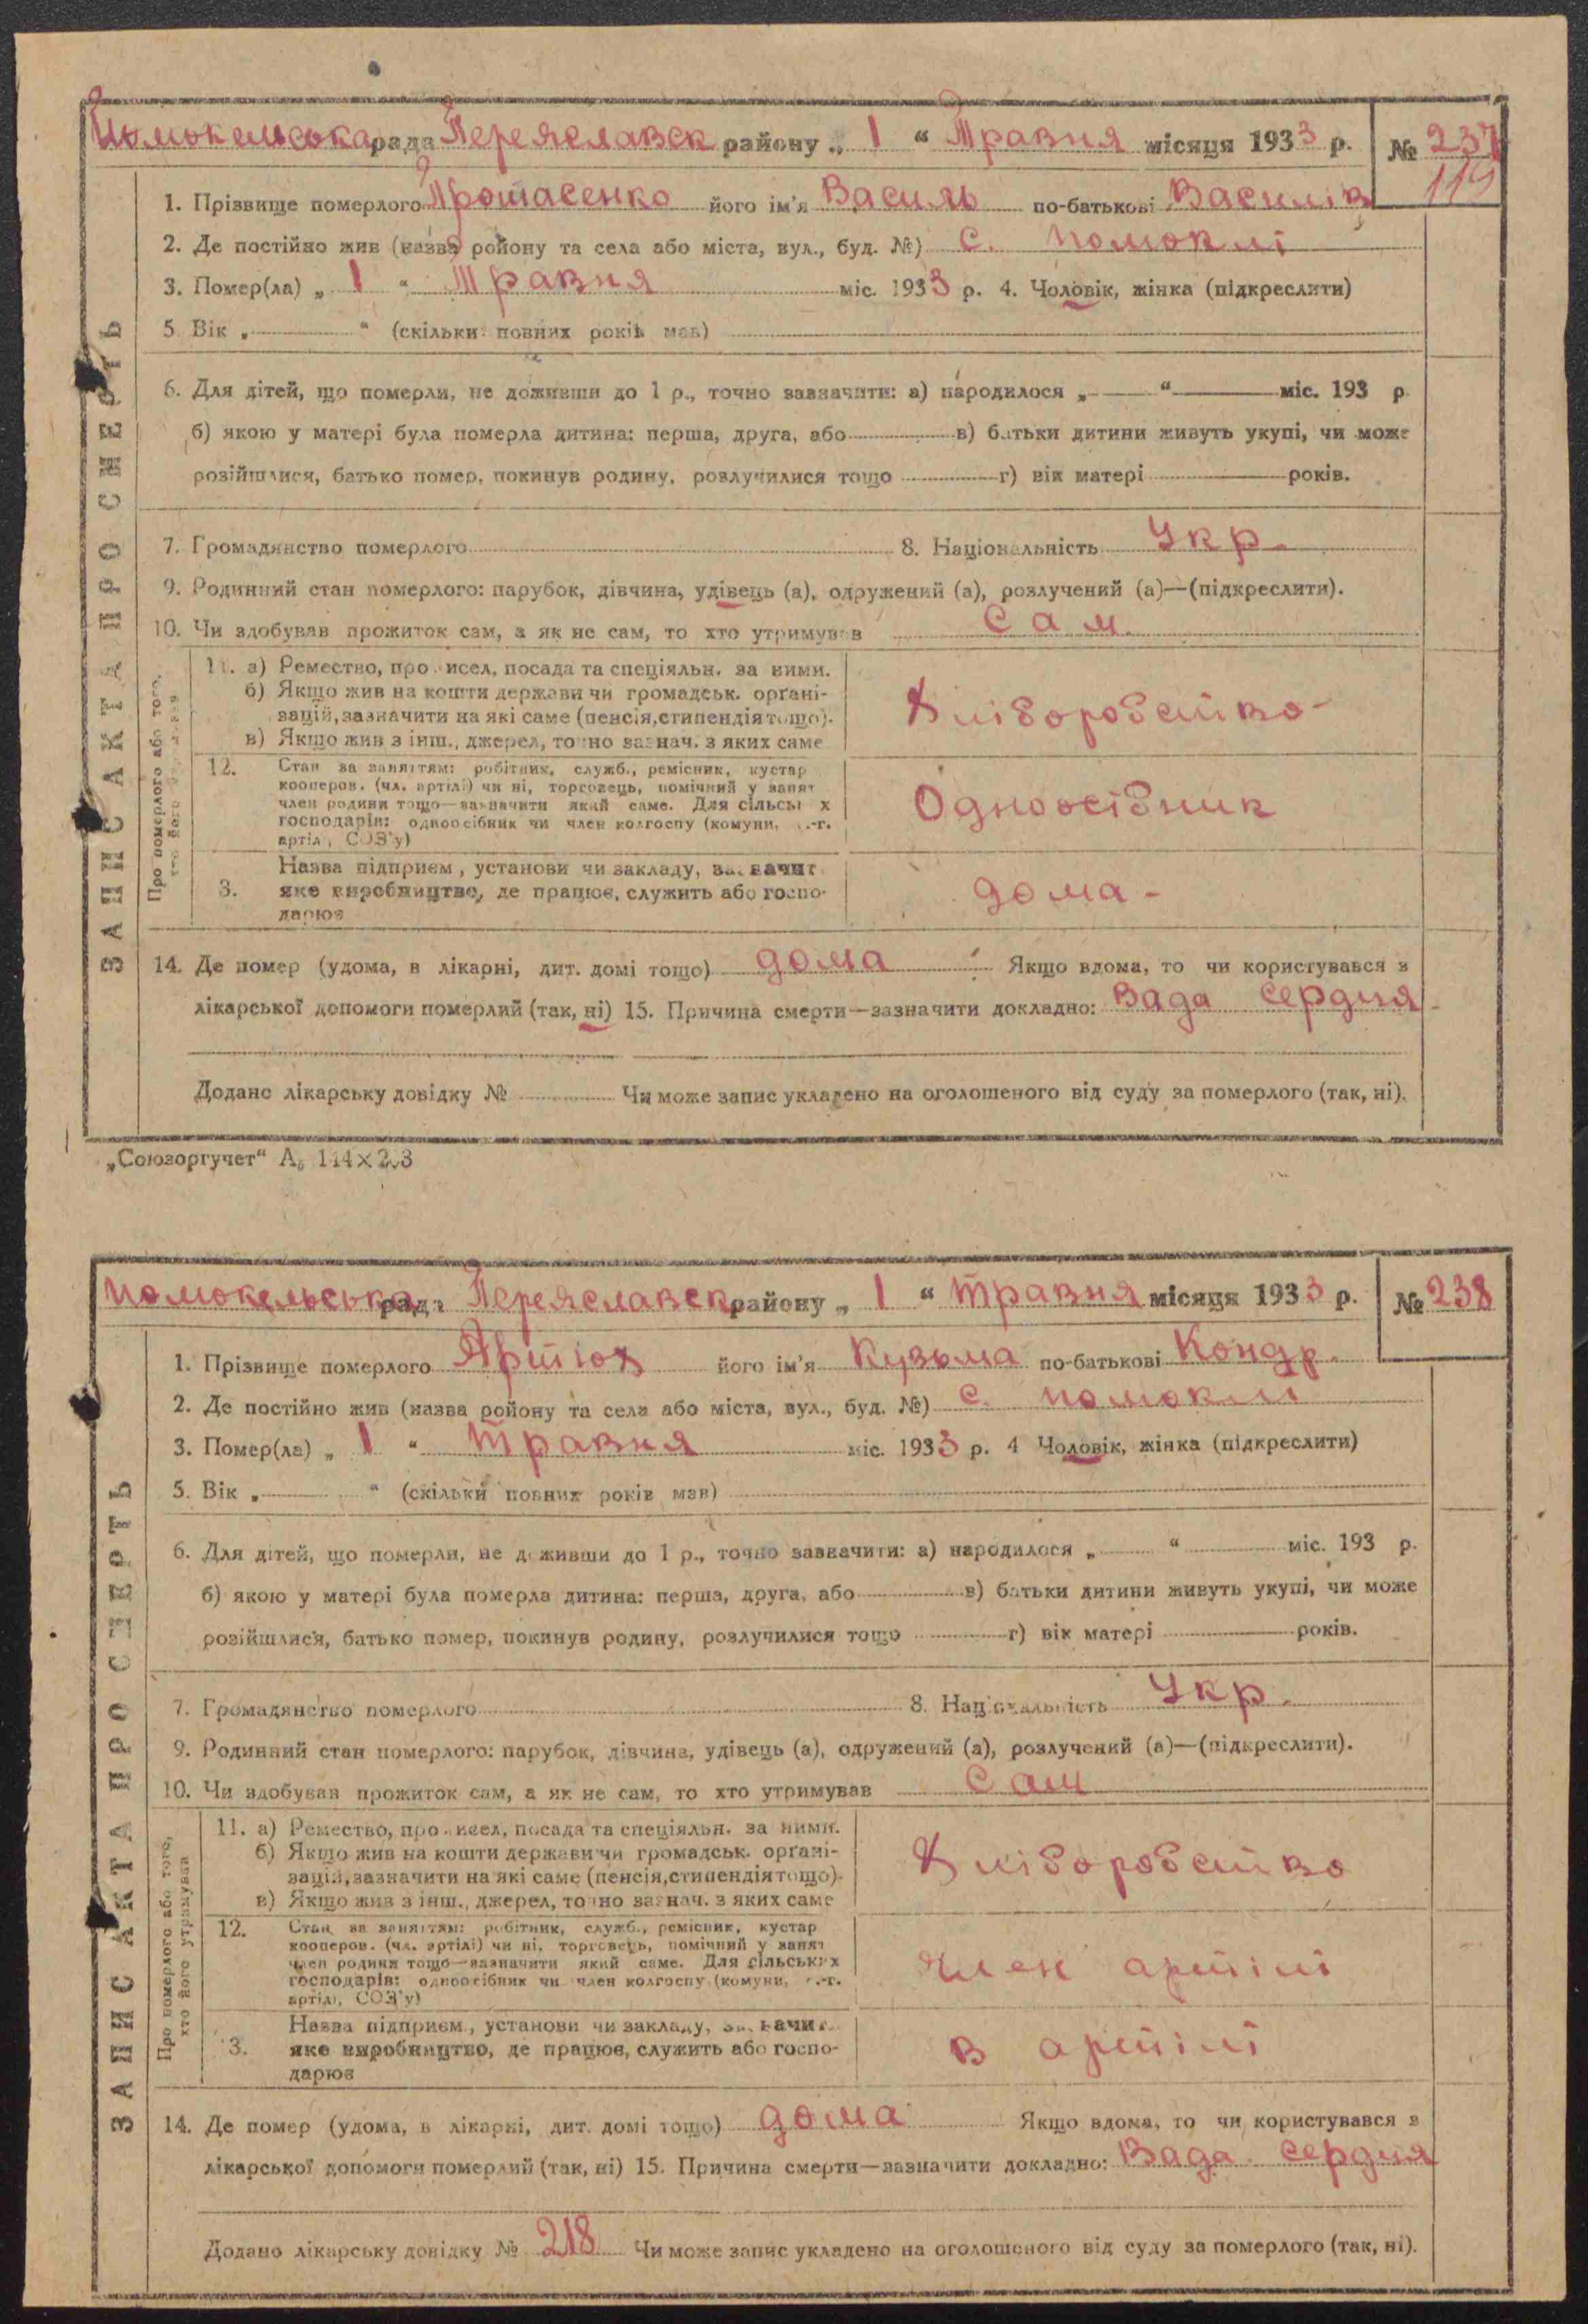 Помокельська рада Переяславск району „ 1 “ Травня місяця 1933 р. № 237
119
1. Прізвище померлого Протасенко його ім'я Василь по-батькові Василів
2. Де постійно жив (назва ройону та села або міста, вул., буд. №) с. Помоклі
3. Помер(ла) „ 1 “ Травня міс. 1933 р. 4. Чоловік, жінка (підкреслити)
5. Вік „ “ (скільки повних років мав)
6. Для дітей, що померли, не доживши до 1 р., точно зазначити: а) народилося „ “ міс. 193 р.
б) якою у матері була померла дитина: перша, друга, або в) батьки дитини живуть укупі, чи може
розійшлися, батько помер, покинув родину, розлучилися тощо г) вік матері років.
7. Громадянство померлого 8. Національність Укр.
9. Родинний стан померлого: парубок, дівчина, удівець (а), одружений (а), розлучений (а)—(підкреслити).
10. Чи здобував прожиток сам, а як не сам, то хто утримував Сам
ЗАПИС АКТА ПРО СМЕРТЬ
Про померлого або того,
хто його утримував
11. а) Ремество, промисел, посада та спеціяльн. за ними.
б) Якщо жив на кошти держави чи громадськ. орґані-
зацій, зазначити на які саме (пенсія, стипендія тощо).
в) Якщо жив з інш., джерел, точно зазнач. з яких саме
Хліборобство
12. Стан за заняттям: робітник, служб., ремісник, кустар
кооперов. (чл. артілі) чи ні, торговець, помічний у занят
член родини тощо—зазначити який саме. Для сільськ х
господарів: одноосібник чи член колгоспу (комуни, с.-г.
артілі, СОЗ'у)
Одноосібник
3. Назва підприєм., установи чи закладу, зазначит
яке виробництво, де працює, служить або госпо-
дарює
дома -
14. Де помер (удома, в лікарні, дит. домі тощо) дома Якщо вдома, то чи користувався з
лікарської допомоги померлий (так, ні) 15. Причина смерти—зазначити докладно: Вада сердця
Додано лікарську довідку № Чи може запис укладено на оголошеного від суду за померлого (так, ні).
„Союзоргучет“ А₅ 144×203
Помокельська рада Переяславск району „ 1 “ травня місяця 1933 р. № 238
1. Прізвище померлого Артюх його ім'я Кузьма по-батькові Кондр.
2. Де постійно жив (назва ройону та села або міста, вул., буд. №) с. Помоклі
3. Помер(ла) „ 1 “ травня міс. 1933 р. 4 Чоловік, жінка (підкреслити)
5. Вік „ “ (скільки повних років мав)
6. Для дітей, що померли, не доживши до 1 р., точно зазначити: а) народилося „ “ міс. 193 р.
б) якою у матері була померла дитина: перша, друга, або в) батьки дитини живуть укупі, чи може
розійшлися, батько помер, покинув родину, розлучилися тощо г) вік матері років.
7. Громадянство померлого 8. Національність Укр.
9. Родинний стан померлого: парубок, дівчина, удівець (а), одружений (а), розлучений (а)—(підкреслити).
10. Чи здобував прожиток сам, а як не сам, то хто утримував Сам
ЗАПИС АКТА ПРО СМЕРТЬ
Про померлого або того,
хто його утримував
11. а) Ремество, промисел, посада та спеціяльн. за ними.
б) Якщо жив на кошти держави чи громадськ. орґані-
зацій, зазначити на які саме (пенсія, стипендія тощо).
в) Якщо жив з інш., джерел, точно зазнач. з яких саме
Хліборобство
12. Стан за заняттям: робітник, служб., ремісник, кустар
кооперов. (чл. артілі) чи ні, торговець, помічний у занят
член родини тощо—зазначити який саме. Для сільських
господарів: одноосібник чи член колгоспу (комуни, с.-г.
артілі, СОЗ'у)
член артілі
3. Назва підприєм., установи чи закладу, зазначит
яке виробництво, де працює, служить або госпо-
дарює
в артілі
14. Де помер (удома, в лікарні, дит. домі тощо) дома Якщо вдома, то чи користувався з
лікарської допомоги померлий (так, ні) 15. Причина смерти—зазначити докладно: Вада сердця
Додано лікарську довідку № 218 Чи може запис укладено на оголошеного від суду за померлого (так, ні).